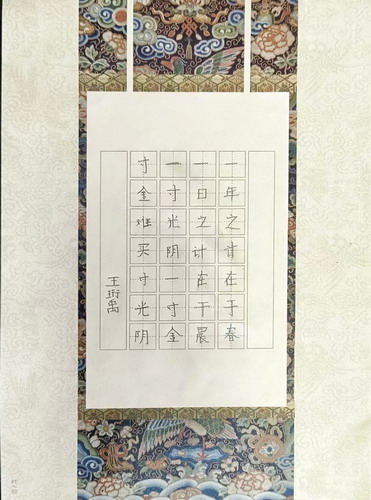 一年之计在于春
一日之计在于晨
一寸光阴一寸金
寸金难买寸光阴
王珩禹